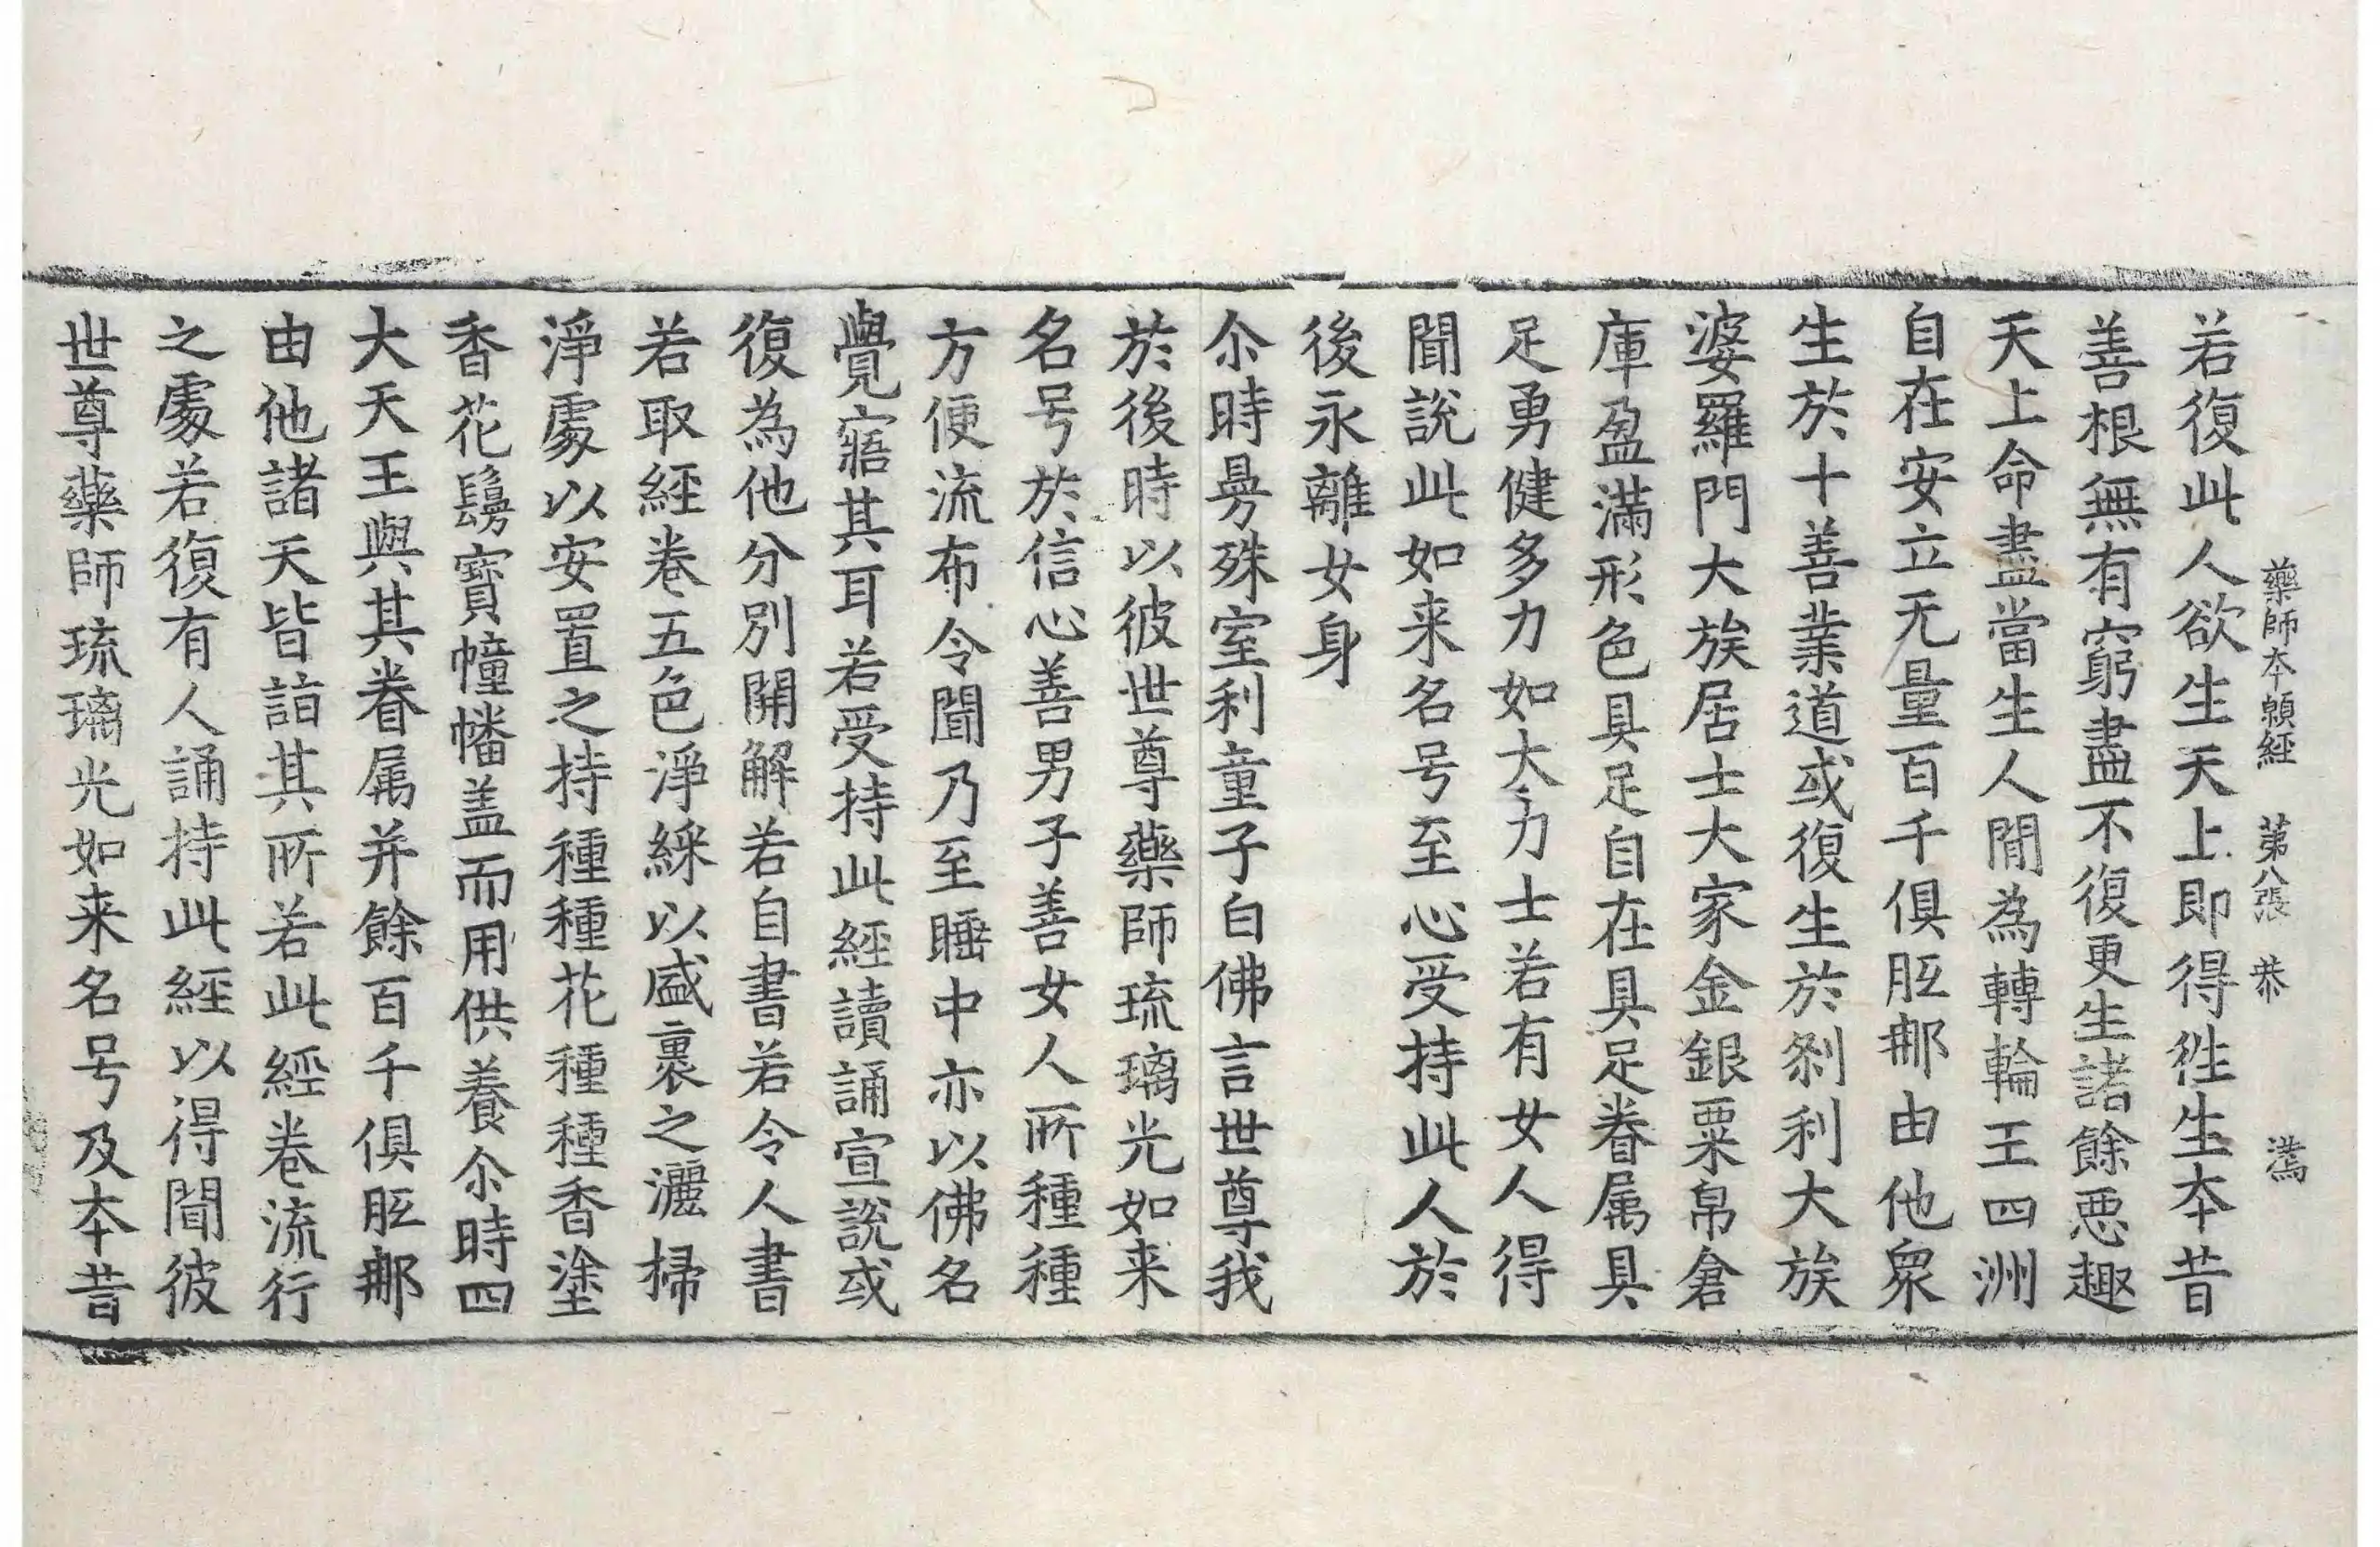 藥師本願經 第八張 恭 㵢
若復此人欲生天上即得徃生本昔
善根無有窮盡不復更生諸餘悪趣
天上命盡當生人間為轉輪王四洲
自在安立无量百千俱胝那由他衆
生於十善業道或復生於刹利大族
婆羅門大族居士大家金銀粟帛倉
庫盈滿形色具足自在具足眷属具
足勇健多力如大力士若有女人得
聞說此如来名号至心受持此人於
後永離女身
尒時曼殊室利童子白佛言世尊我
於後時以彼世尊藥師琉璃光如来
名号於信心善男子善女人所種種
方便流布令聞乃至睡中亦以佛名
覺寤其耳若受持此經讀誦宣說或
復為他分別開解若自書若令人書
若取經卷五色淨綵以盛裹之灑掃
淨處以安置之持種種花種種香塗
香花鬘寶幢幡盖而用供養尒時四
大天王與其眷属并餘百千俱胝那
由他諸天皆詣其所若此經卷流行
之處若復有人誦持此經以得聞彼
世尊藥師琉璃光如来名号及本昔